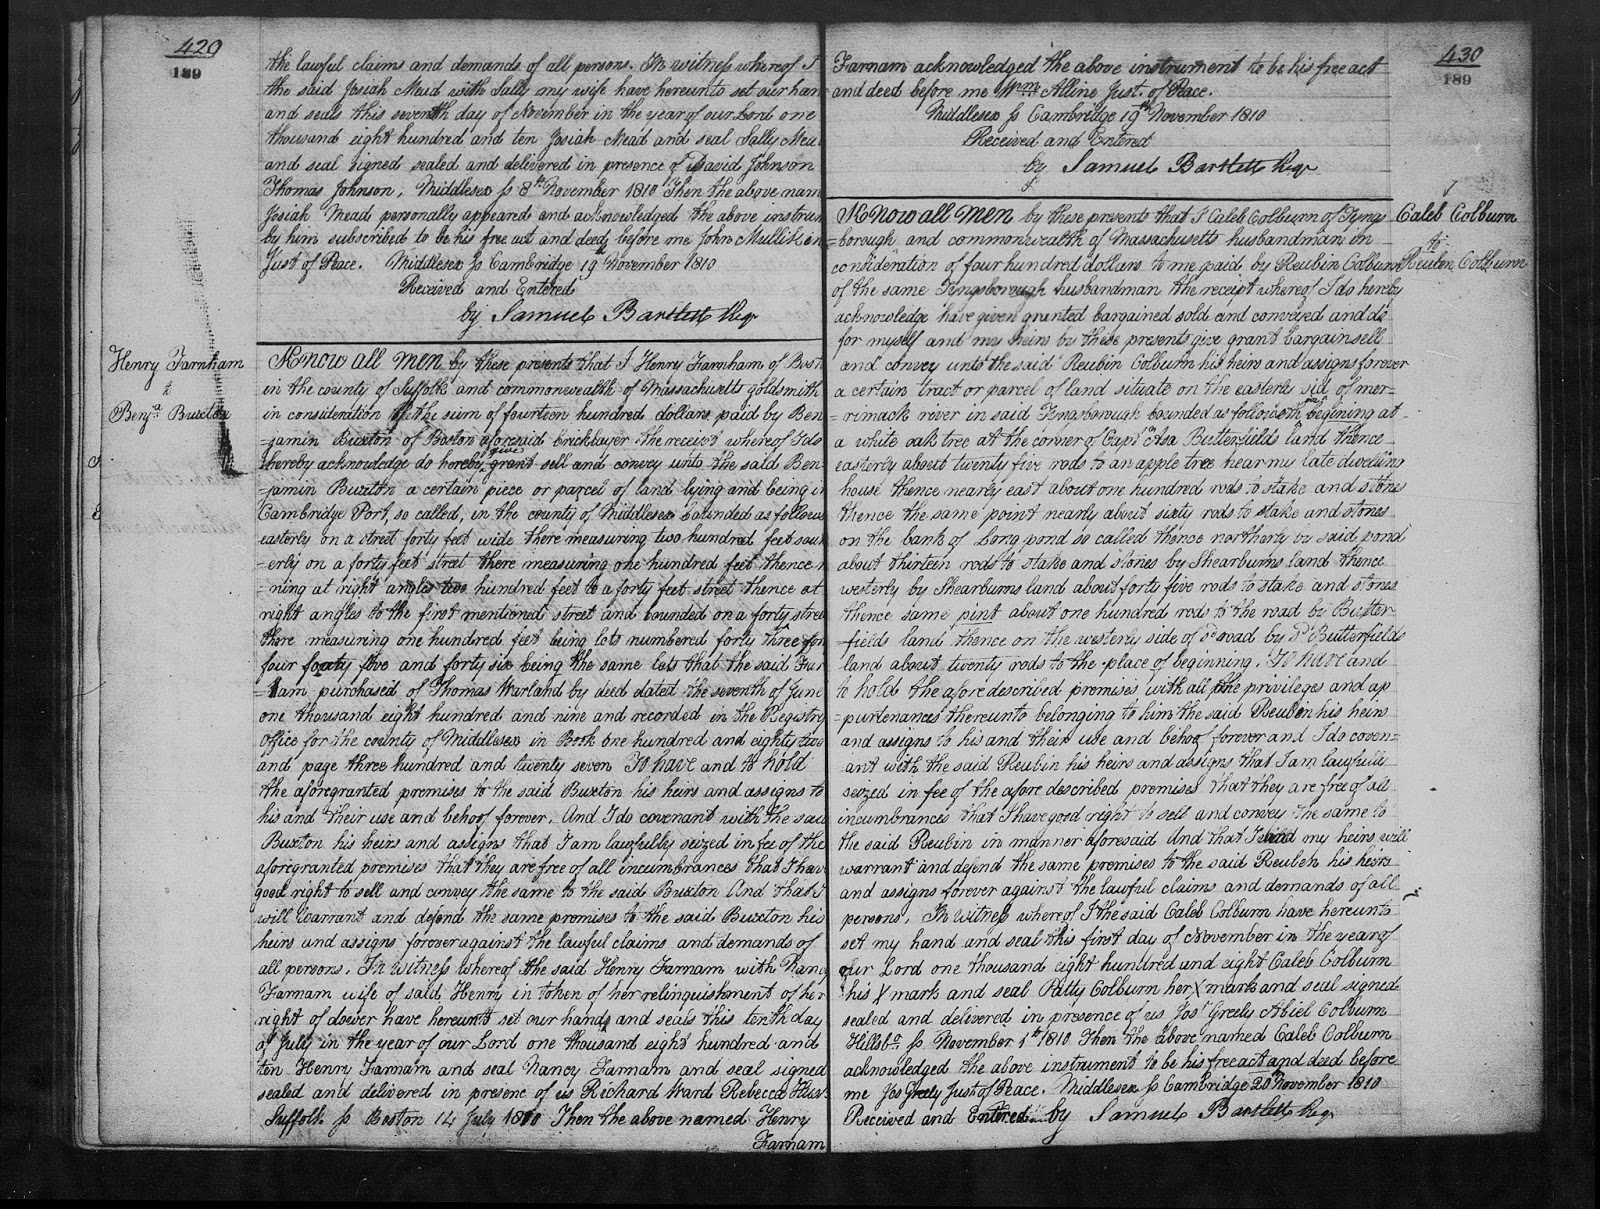 420
189
the lawful claims and demands of all persons. In witness whereof I
the said Josiah Mead with Sally my wife have hereunto set our han
and seals this seventh day of November in the year of our Lord one
thousand eight hundred and ten Josiah Mead and seal Sally Mea
and seal signed sealed and delivered in presence of David Johnson
Thomas Johnson. Middlesex ss 8th November 1810 Then the above nam
Josiah Mead personally appeared and acknowledged the above instrum
by him subscribed to be his free act and deed, before me John Mulliken
Just of Peace. Middlesex ss Cambridge 19th November 1810
Received and Entered
by Samuel Bartlett Regr
Henry Farnham
to
Benja Buxton
Know all men by these presents that I Henry Farnham of Bost
in the county of Suffolk and commonwealth of Massachusetts goldsmith
in consideration of the sum of fourteen hundred dollars paid by Ben
=jamin Buxton of Boston aforesaid bricklayer the receipt whereof I do
hereby acknowledge do hereby give grant sell and convey unto the said Ben
=jamin Buxton a certain piece or parcel of land lying and being in
Cambridge Port, so called, in the county of Middlesex bounded as follows
easterly on a street forty feet wide there measuring two hundred feet sout
=erly on a forty feet street there measuring one hundred feet thence
=ning at right angles two hundred feet to a forty feet street thence at
right angles to the first mentioned street and bounded on a forty stree
there measuring one hundred feet being lots numbered forty three for
four forty five and forty six being the same lots that the said Far
=nam purchased of Thomas Warland by deed dated the seventh of June
one thousand eight hundred and nine and recorded in the Registry
office for the county of Middlesex in Book one hundred and eighty two
and page three hundred and twenty seven To have and to hold
the aforegranted premises to the said Buxton his heirs and assigns to
his and their use and behoof forever. And I do covenant with the said
Buxton his heirs and assigns that I am lawfully seized in fee of the
aforegranted premises that they are free of all incumbrances that I have
good right to sell and convey the same to the said Buxton And that I
will warrant and defend the same premises to the said Buxton his
heirs and assigns forever against the lawful claims and demands of
all persons. In witness whereof the said Henry Farnam with Nancy
Farnam wife of said Henry in token of her relinquishment of her
right of dower have hereunto set our hands and seals this tenth day
of July in the year of our Lord one thousand eight hundred and
ten Henry Farnam and seal Nancy Farnam and seal signed
sealed and delivered in presence of us Richard Ward Rebecca
Suffolk ss Boston 14 July 1810 Then the above named Henry
Farnam
430
189
Farnam acknowledged the above instrument to be his free act
and deed before me Wm Alline Just. of Peace.
Middlesex ss Cambridge 19th November 1810
Received and Entered
by Samuel Bartlett Regr
Caleb Colburn
to
Reuben Colburn
Know all men by these presents that I Caleb Colburn of Tyngs
=borough and commonwealth of Massachusetts husbandman in
consideration of four hundred dollars to me paid by Reubin Colburn
of the same Tyngsborough husbandman the receipt whereof I do hereby
acknowledge have given granted bargained sold and conveyed and do
for myself and my heirs by these presents give grant bargain sell
and convey unto the said Reubin Colburn his heirs and assigns forever
a certain tract or parcel of land situate on the easterly side of mer=
=rimack river in said Tyngsborough bounded as followeth begining at
a white oak tree at the corner of Capt Asa Butterfields land thence
easterly about twenty five rods to an apple tree near my late dwelling
house thence nearly east about one hundred rods to stake and stones
thence the same point nearly about sixty rods to stake and stones
on the bank of Long pond so called thence northerly by said pond
about thirteen rods to stake and stones by Shearburns land thence
westerly by Shearburns land about forty five rods to stake and stones
thence same pint about one hundred rods to the road by Butter
=fields land thence on the westerly side of sd road by sd Butterfields
land about twenty rods to the place of beginning. To have and
to hold the afore described premises with all the privileges and ap
=purtenances thereunto belonging to him the said Reuben his heirs
and assigns to his and their use and behoof forever and I do coven=
ant with the said Reubin his heirs and assigns that I am lawfully
seized in fee of the afore described premises that they are free of all
incumbrances that I have good right to sell and convey the same to
the said Reubin in manner aforesaid And that I and my heirs will
warrant and defend the same premises to the said Reuben his heirs
and assigns forever against the lawful claims and demands of all
persons. In witness whereof I the said Caleb Colburn have hereunto
set my hand and seal this first day of November in the year of
our Lord one thousand eight hundred and eight Caleb Colburn
his X mark and seal Patty Colburn her X mark and seal signed
sealed and delivered in presence of us Jos Greely Abiel Colburn
Hillsbo ss November 1st 1810 Then the above named Caleb Colburn
acknowledged the above instrument to be his free act and deed before
me Jos Greely Just of Peace. Middlesex ss Cambridge 20 November 1810
Received and Entered by Samuel Bartlett Regr